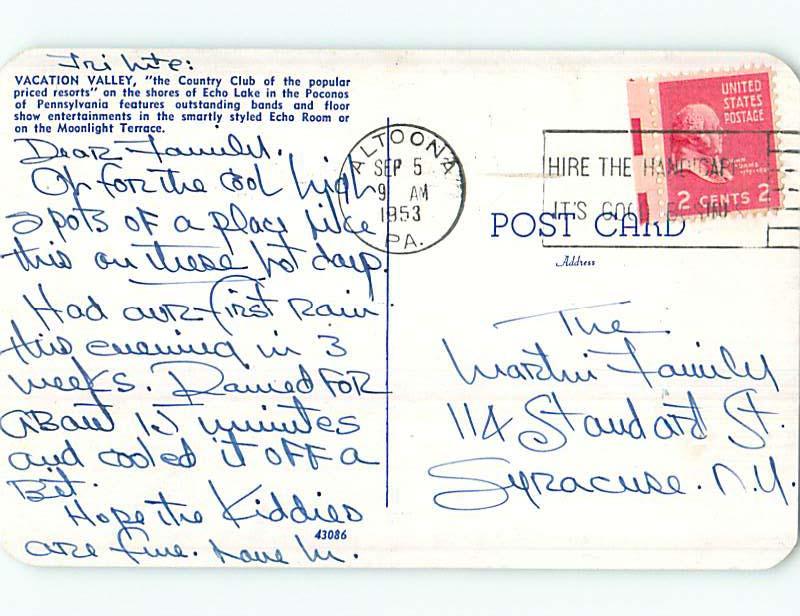 Fri Nite:
VACATION VALLEY, "the Country Club of the popular
priced resorts" on the shores of Echo Lake in the Poconos
of Pennsylvania features outstanding bands and floor
show entertainments in the smartly styled Echo Room or
on the Moonlight Terrace.
Dear Family.
Oh for the cool high
spots of a place like
this on these hot days.
Had our first rain
this evening in 3
weeks. Rained for
about 15 minutes
and cooled it off a
Bit.
Hope the Kiddies
are fine. Love M.
43086
ALTOONA
SEP 5
9 AM
1953
PA.
HIRE THE HANDICAPP
IT'S GOOD
UNITED
STATES
POSTAGE
2 CENTS 2
POST CARD
Address
The
Martin Family
114 Standard St.
Syracuse. N.Y.